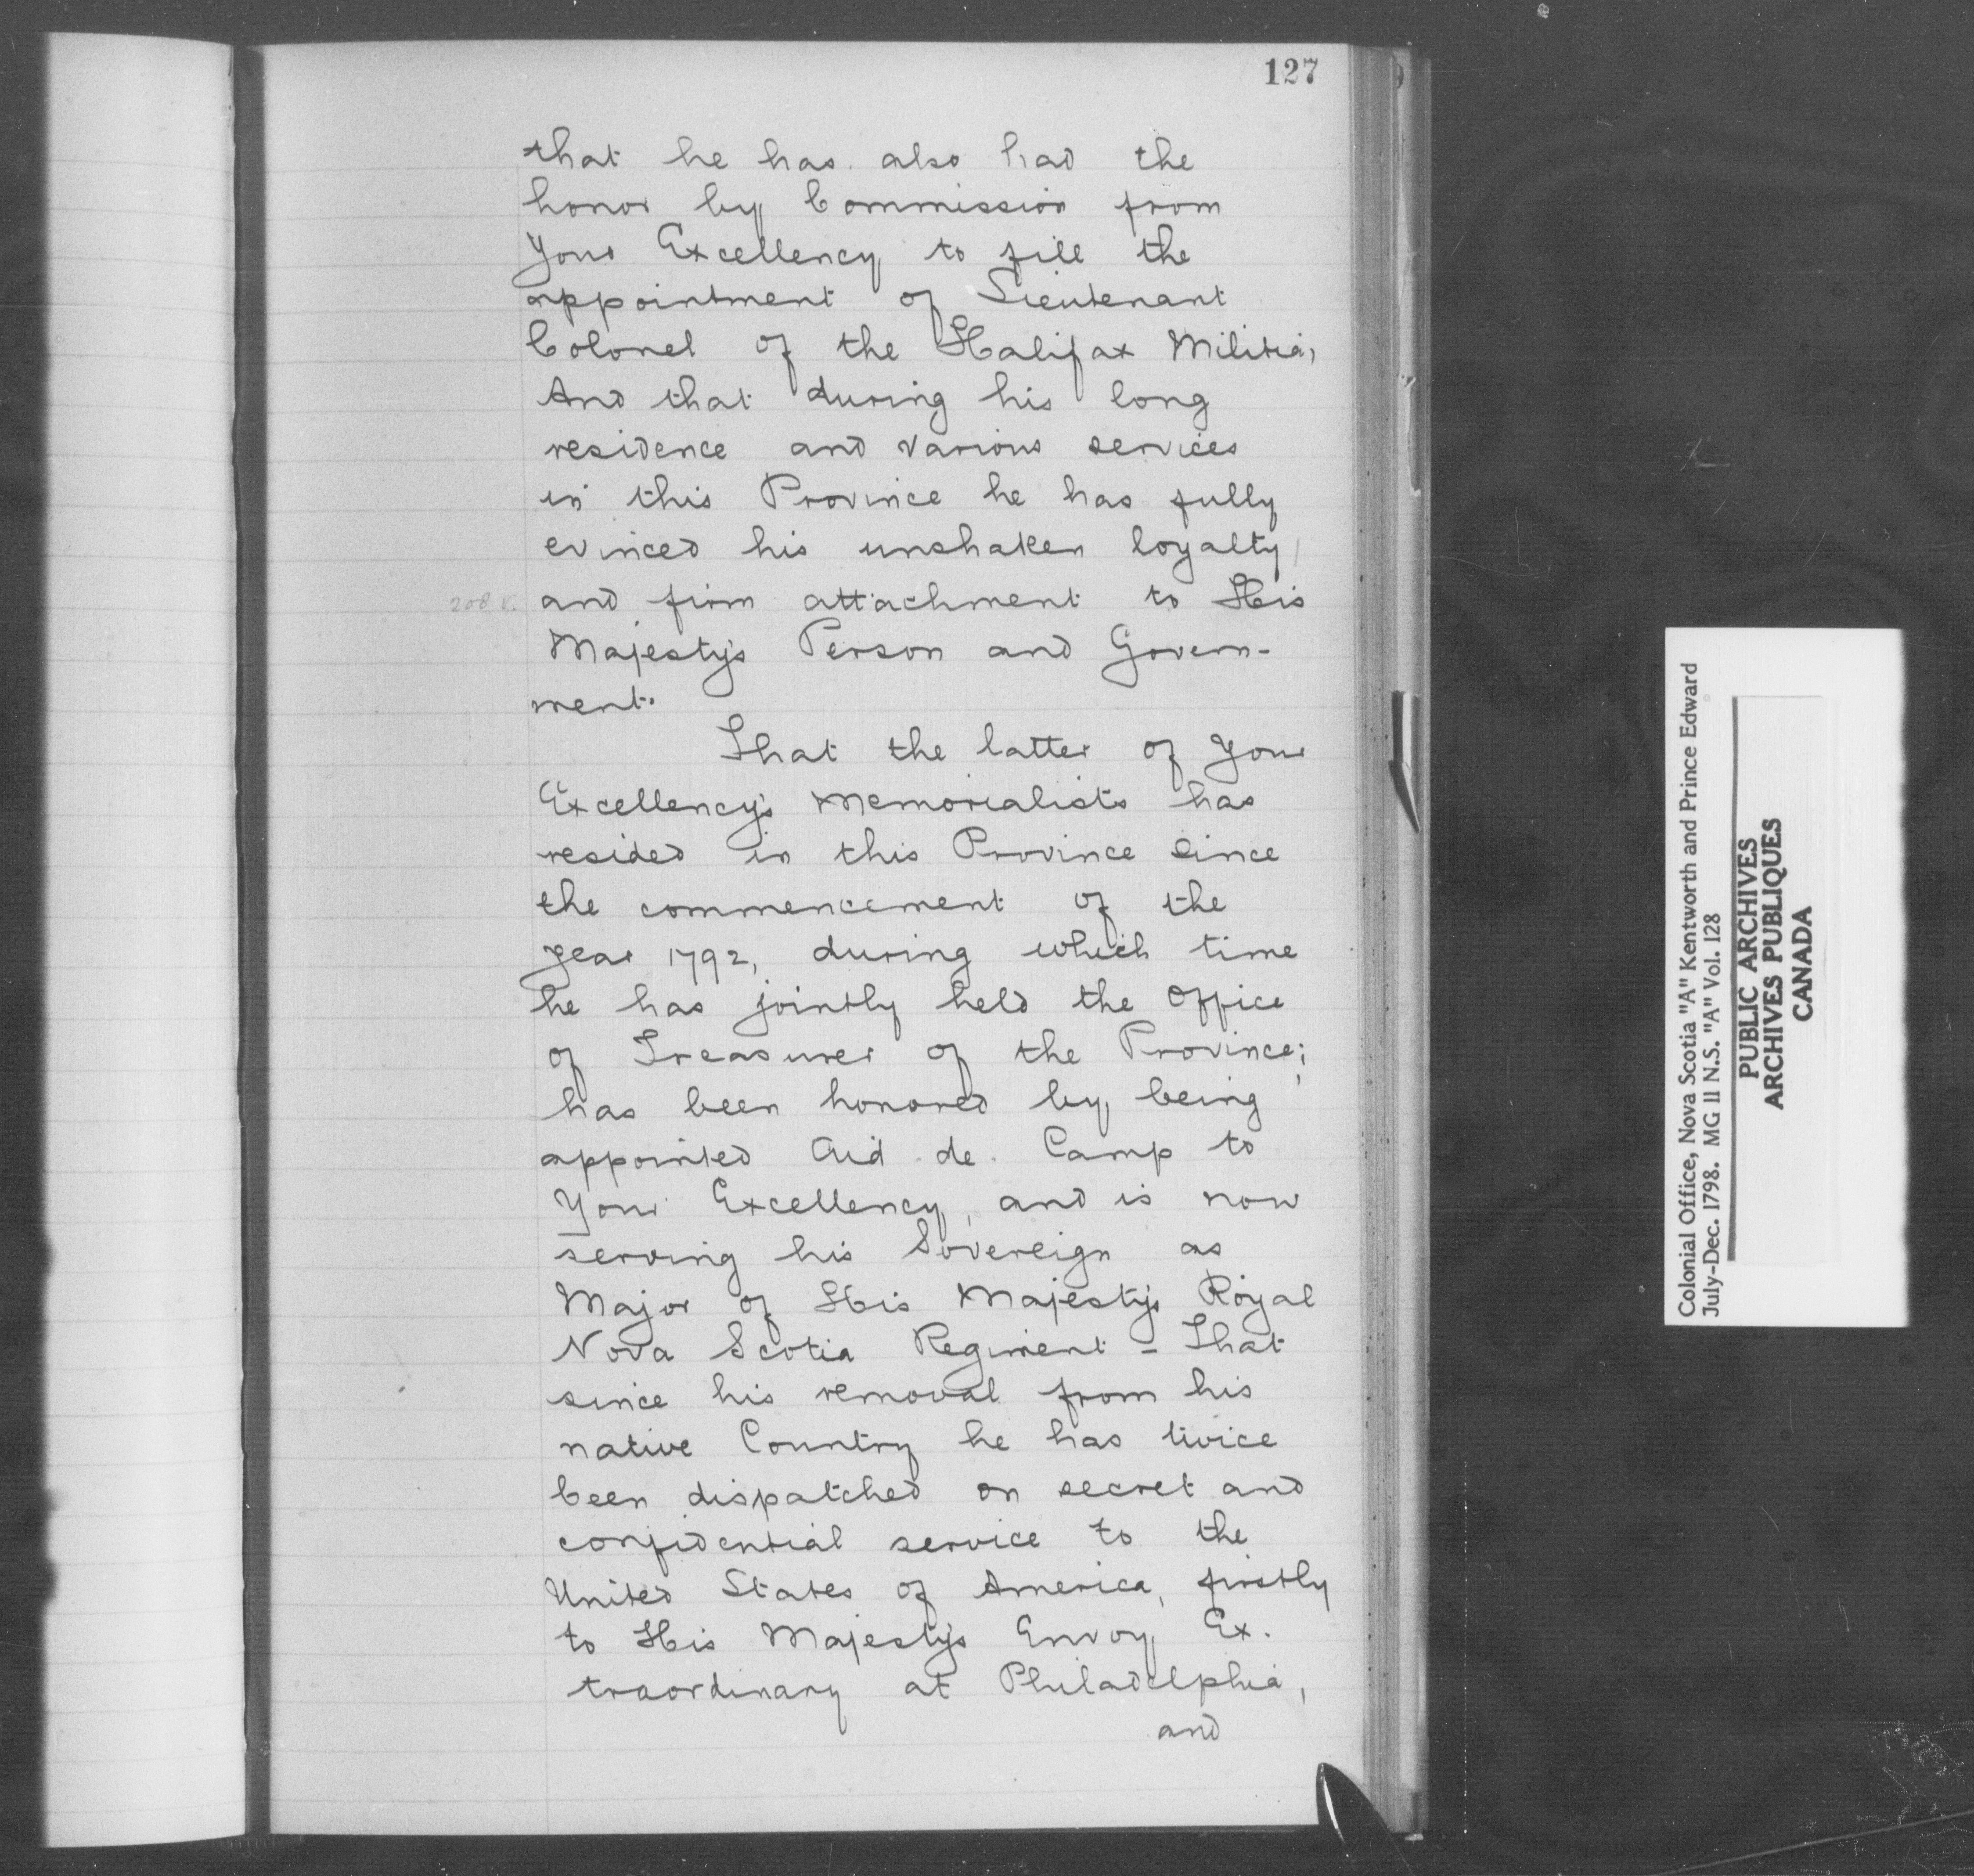 127
that he has also had the
honor by Commission from
Your Excellency to fill the
appointment of Lieutenant
Colonel of the Halifax Militia,
And that during his long
residence and various services
in this Province he has fully
evinced his unshaken loyalty
208 v.
and firm attachment to His
Majesty's Person and Govern-
ment.
That the latter of Your
Excellency's Memorialists has
resided in this Province since
the commencement of the
year 1792, during which time
he has jointly held the Office
of Treasurer of the Province;
has been honored by being
appointed Aid. de. Camp to
Your Excellency, and is now
serving his Sovereign as
Major of His Majesty's Royal
Nova Scotia Regiment - That
since his removal from his
native Country he has twice
been dispatched on secret and
confidential service to the
United States of America, firstly
to His Majesty's Envoy Ex.
traordinary at Philadelphia,
and
Colonial Office, Nova Scotia "A" Kentworth and Prince Edward
July-Dec. 1798. MG 11 N.S. "A" Vol. 128
PUBLIC ARCHIVES
ARCHIVES PUBLIQUES
CANADA